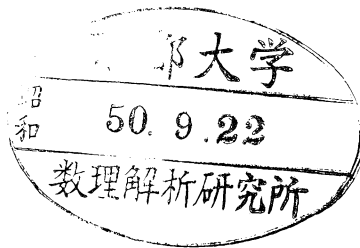 都大学
昭和 50. 9. 22
数理解析研究所